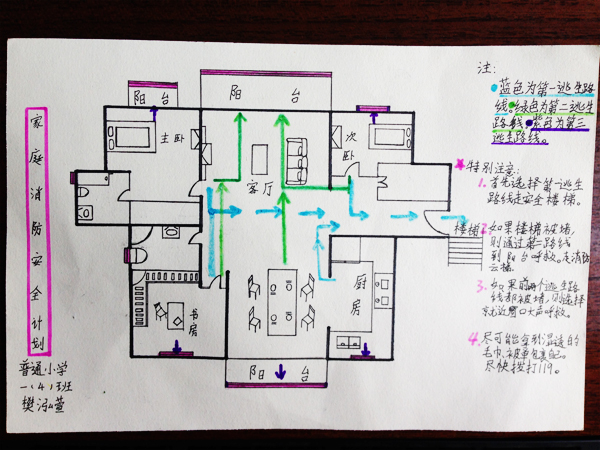 家庭消防安全计划
普通小学
一.(4)班
樊泓萱
阳台
阳台
主卧
次卧
客厅
厨房
书房
阳台
楼梯
注:
蓝色为第一逃生路
线。绿色为第二逃生
路线。紫色为第三
逃生路线。
特别注意:
1. 首先选择第一逃生
路线走安全楼梯。
2. 如果楼梯被堵,
则通过第二路线
到阳台呼救。走消防
云梯。
3. 如果前两个逃生路
线都被堵,则选择
就近窗口大声呼救。
4. 尽可能拿到湿透的
毛巾、被单
尽快拨打119。